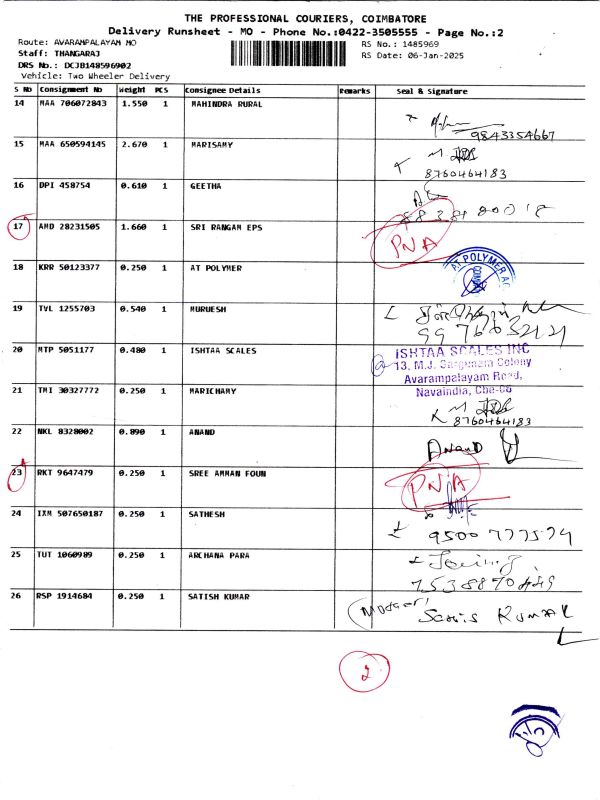 THE PROFESSIONAL COURIERS, COIMBATORE
Delivery Runsheet - MO - Phone No.:0422-3505555 - Page No.:2
Route: AVARAMPALAYAM MO RS No.: 1485969
Staff: THANGARAJ RS Date: 06-Jan-2025
DRS No.: DCJB148596902
Vehicle: Two Wheeler Delivery
S No Consignment No Weight PCS Consignee Details Remarks Seal & Signature
14 MAA 706072843 1.550 1 MAHINDRA RURAL
9843354667
15 MAA 650594145 2.670 1 MARISAMY
8760464183
16 DPI 458754 0.610 1 GEETHA
17 AMD 28231505 1.660 1 SRI RANGAM EPS
PNA
18 KRR 50123377 0.250 1 AT POLYMER
AT POLYMER
19 TVL 1255703 0.540 1 MURUESH
20 MTP 5051177 0.480 1 ISHTAA SCALES
ISHTAA SCALES INC
13, M.J. Sargunam Colony
Avarampalayam Road,
Navaindia, Cbe-06
21 TMI 30327772 0.250 1 MARICHAMY
8760464183
22 NKL 8328002 0.890 1 ANAND
ANAND
23 RKT 9647479 0.250 1 SREE AMMAN FOUN
PNA
24 IXM 507650187 0.250 1 SATHESH
9500777574
25 TUT 1060989 0.250 1 ARCHANA PARA
26 RSP 1914684 0.250 1 SATISH KUMAR
KUMAR
2